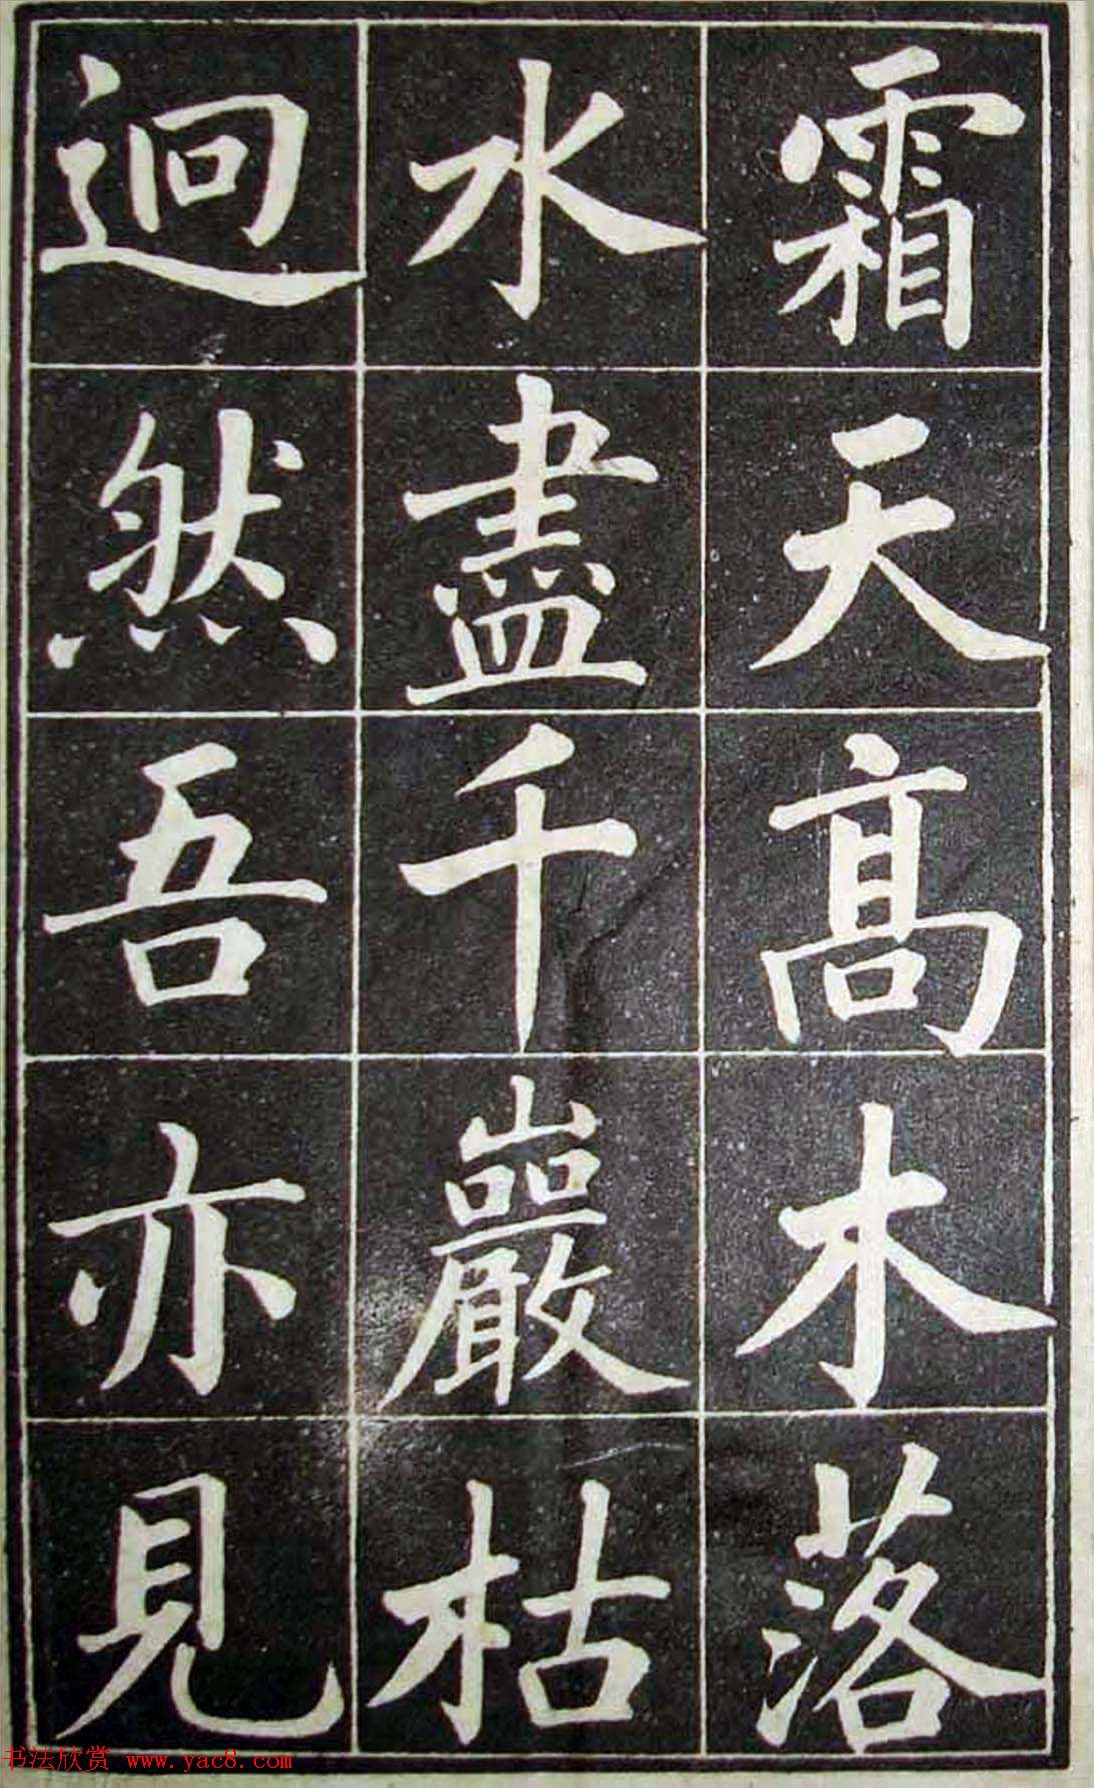 霜天高木落
水盡千巖枯
迥然吾亦見
书法欣赏 www.yac8.com